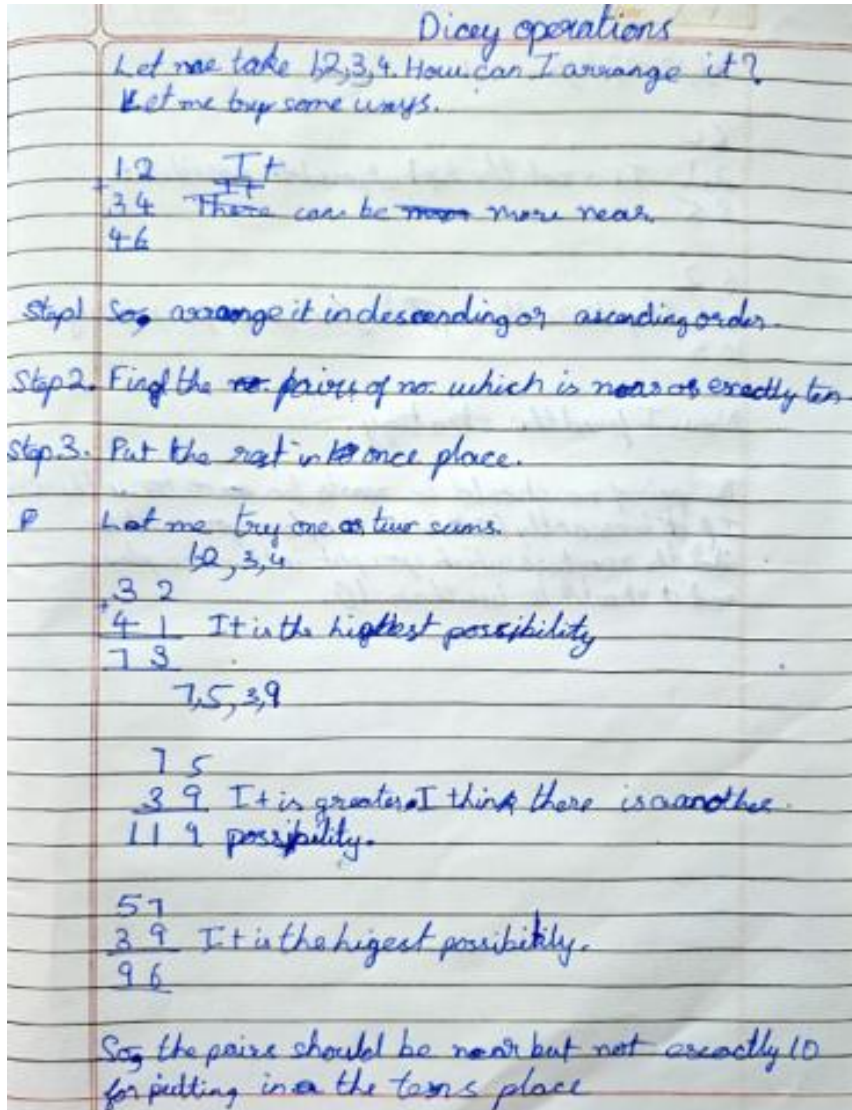 Dicey operations
Let me take 1,2,3,4. How can I arrange it?
Let me try some ways.
12 It
+ It
34 There can be more more near.
46
Step1 So, arrange it in descending or ascending order.
Step 2. Find the no. pairs of no. which is near or exactly ten
Step.3. Put the rest in to once place.
P Let me try one or two sums.
1,2,3,4
32
+
41 It is the highest possibility
73
7,5,3,9
75
39 It is greater. I think there is aanother
119 possibility.
57
39 It is the higest possibikly.
96
So, the pairs should be near but not exactly 10
for putting in a the tens place